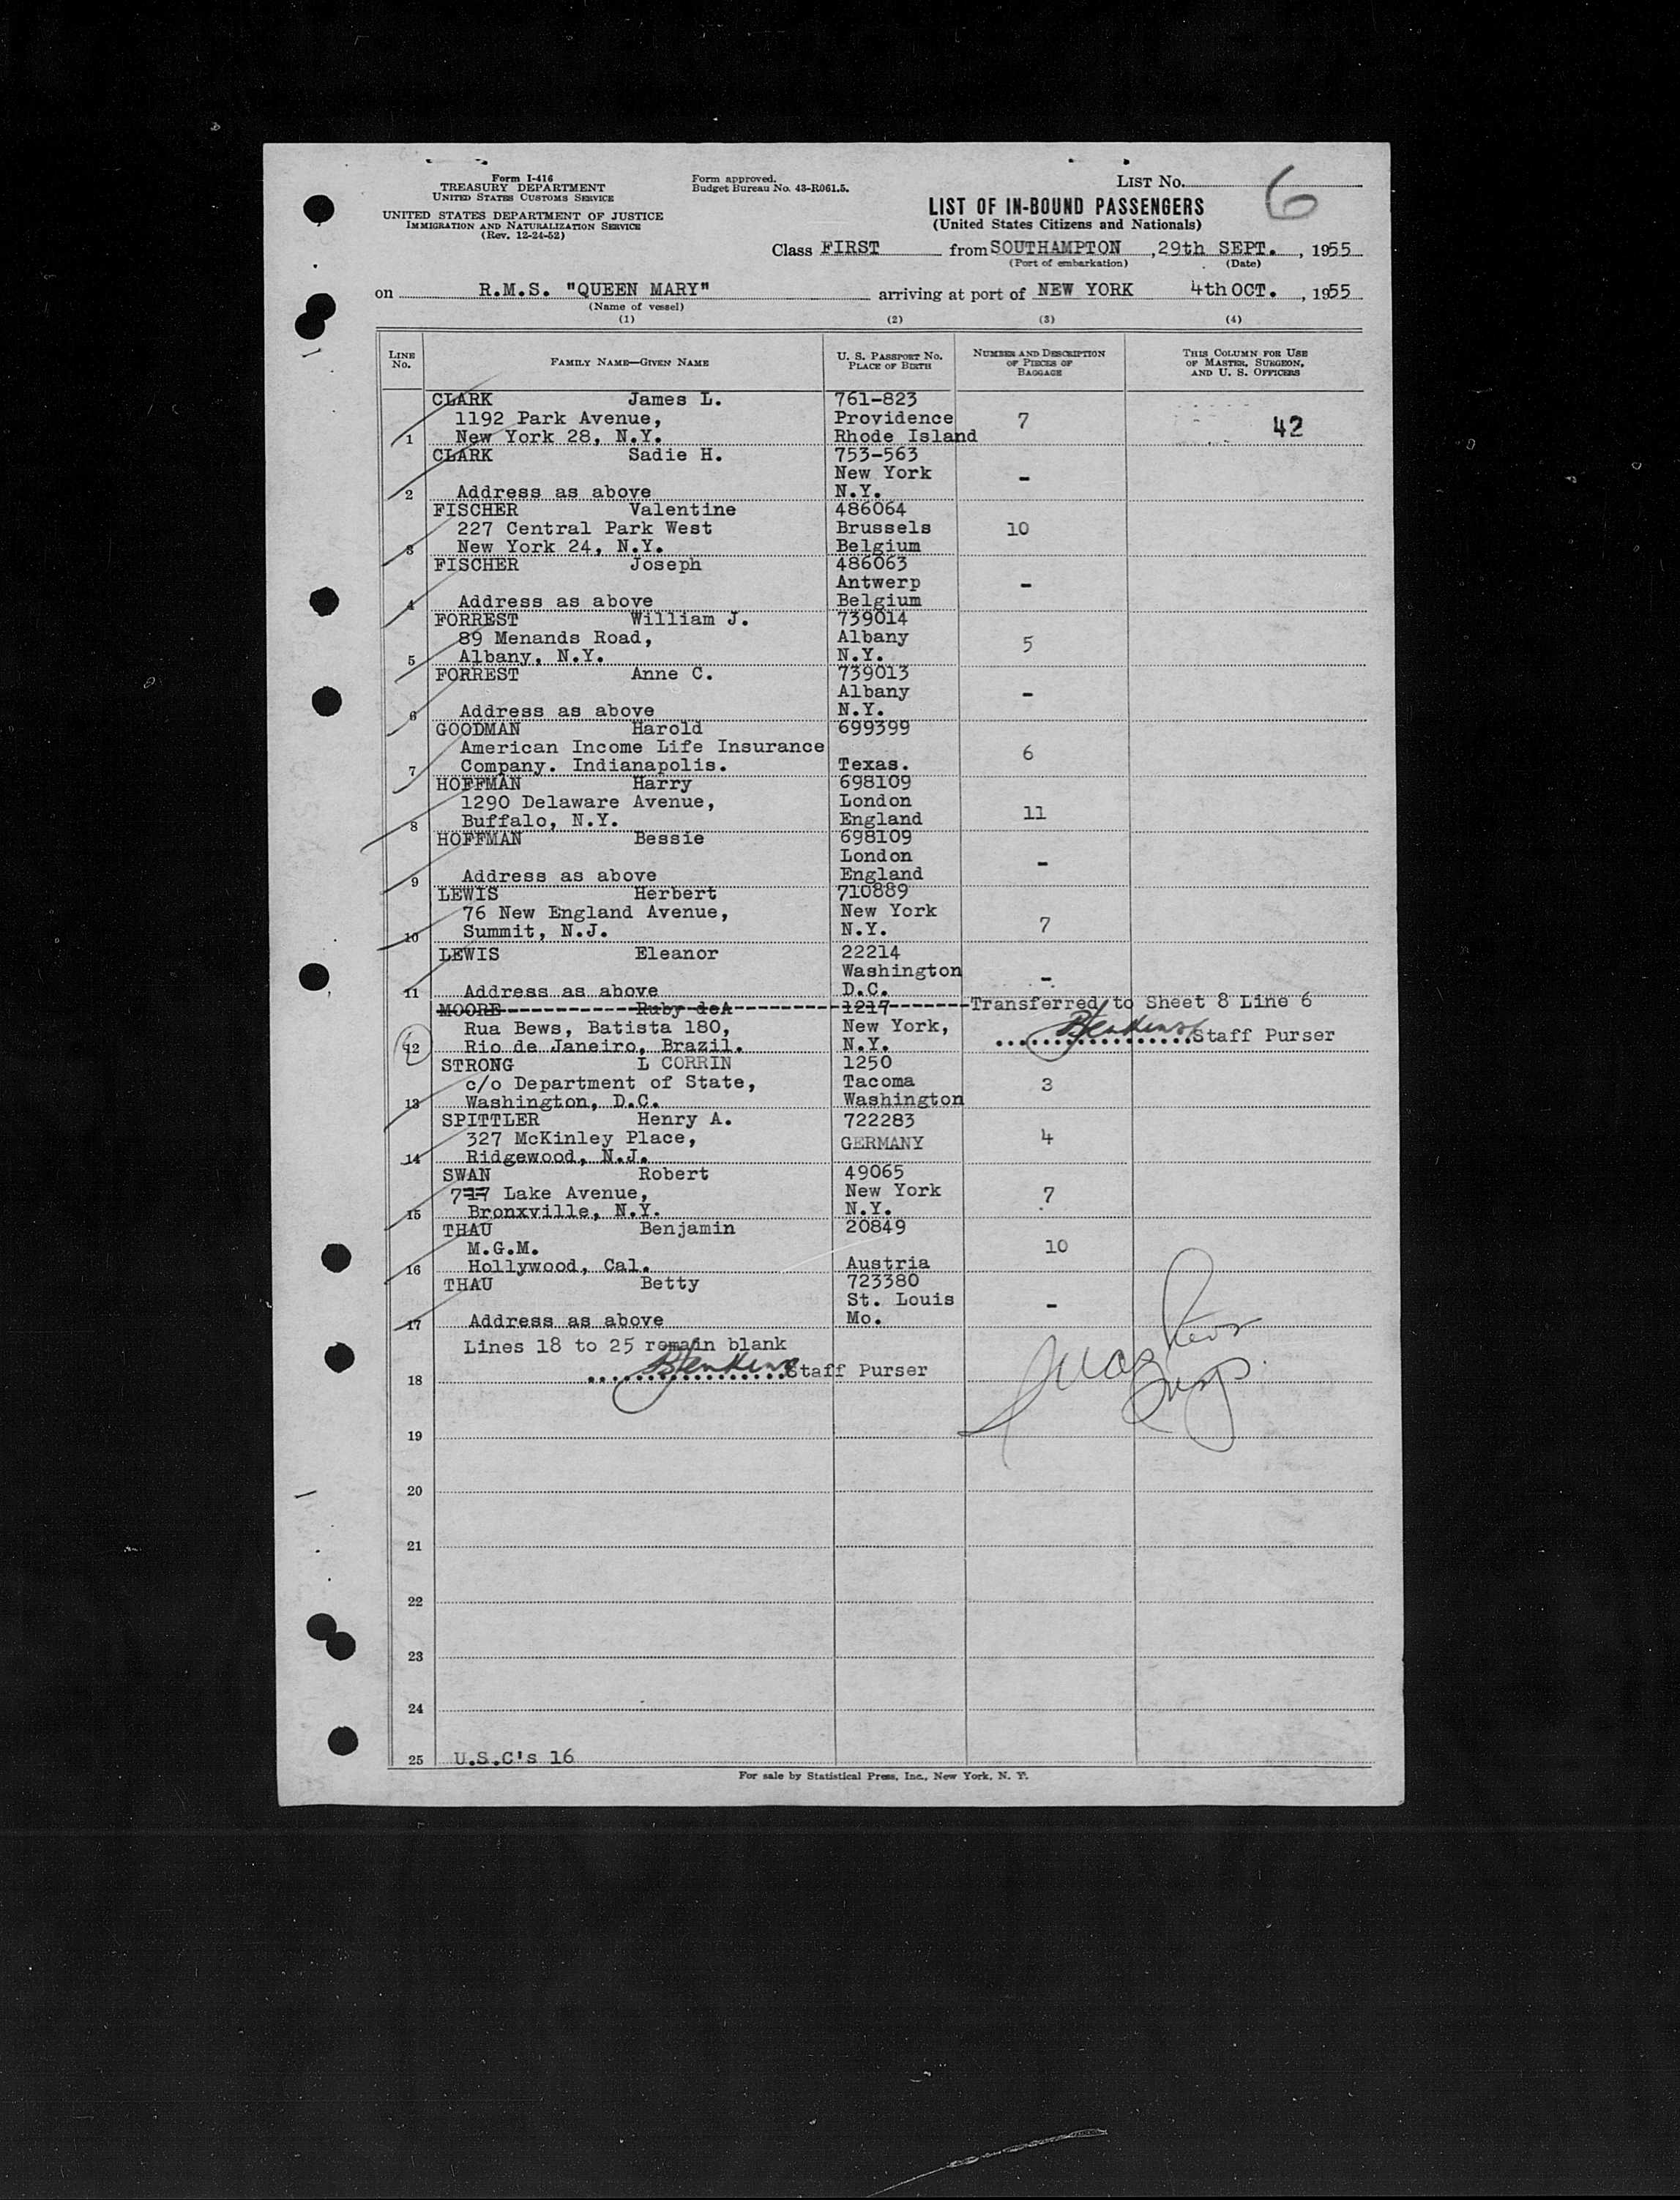 Form I-416
TREASURY DEPARTMENT
UNITED STATES CUSTOMS SERVICE
UNITED STATES DEPARTMENT OF JUSTICE
IMMIGRATION AND NATURALIZATION SERVICE
(Rev. 12-24-52)
Form approved.
Budget Bureau No. 43-R061.5.
LIST No. 6
LIST OF IN-BOUND PASSENGERS
(United States Citizens and Nationals)
Class FIRST from SOUTHAMPTON, 29th SEPT., 1955
(Port of embarkation) (Date)
on R.M.S. "QUEEN MARY" arriving at port of NEW YORK 4th OCT., 1955
(Name of vessel)
(1) (2) (3) (4)
LINE No. FAMILY NAME—GIVEN NAME U. S. PASSPORT No. PLACE OF BIRTH NUMBER AND DESCRIPTION OF PIECES OF BAGGAGE THIS COLUMN FOR USE OF MASTER, SURGEON, AND U. S. OFFICERS
CLARK James L. 761-823
1192 Park Avenue, Providence 7 42
1 New York 28, N.Y. Rhode Island
CLARK Sadie H. 753-563
New York -
2 Address as above N.Y.
FISCHER Valentine 486064
227 Central Park West Brussels 10
3 New York 24, N.Y. Belgium
FISCHER Joseph 486063
Antwerp -
4 Address as above Belgium
FORREST William J. 739014
89 Menands Road, Albany 5
5 Albany, N.Y. N.Y.
FORREST Anne C. 739013
Albany -
6 Address as above N.Y.
GOODMAN Harold 699399
American Income Life Insurance 6
7 Company. Indianapolis. Texas.
HOFFMAN Harry 698109
1290 Delaware Avenue, London
8 Buffalo, N.Y. England 11
HOFFMAN Bessie 698109
London -
9 Address as above England
LEWIS Herbert 710889
76 New England Avenue, New York 7
10 Summit, N.J. N.Y.
LEWIS Eleanor 22214
Washington -
11 Address as above D.C.
MOORE Ruby deA 1217 Transferred to Sheet 8 Line 6
Rua Bews, Batista 180, New York,
12 Rio de Janeiro, Brazil. N.Y. BJenkins Staff Purser
STRONG L CORRIN 1250
c/o Department of State, Tacoma 3
13 Washington, D.C. Washington
SPITTLER Henry A. 722283
327 McKinley Place, GERMANY 4
14 Ridgewood, N.J.
SWAN Robert 49065
717 Lake Avenue, New York 7
15 Bronxville, N.Y. N.Y.
THAU Benjamin 20849
M.G.M. 10
16 Hollywood, Cal. Austria
THAU Betty 723380
St. Louis -
17 Address as above Mo.
Lines 18 to 25 remain blank
18 BJenkins Staff Purser
19
20
21
22
23
24
25 U.S.C's 16
For sale by Statistical Press, Inc., New York, N. Y.